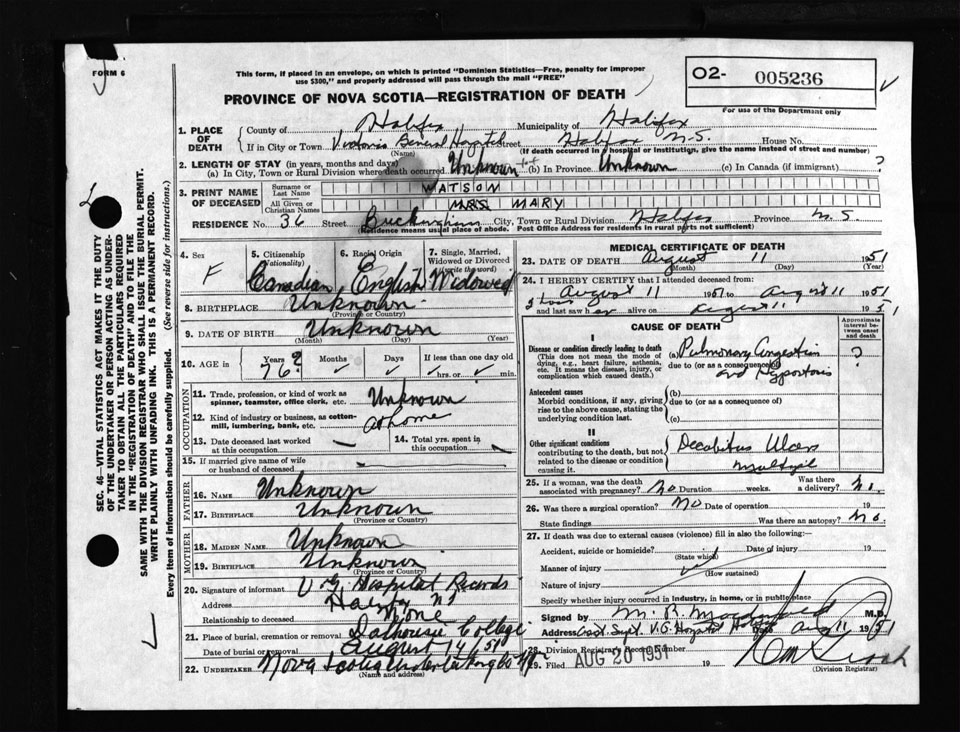 FORM 6
This form, if placed in an envelope, on which is printed "Dominion Statistics—Free, penalty for improper
use $300," and properly addressed will pass through the mail "FREE"
PROVINCE OF NOVA SCOTIA—REGISTRATION OF DEATH
O2- 005236
For use of the Department only
1. PLACE OF DEATH
County of Halifax Municipality of Halifax
If in City or Town Victoria General Hospital Street Halifax N.S. House No.
(Name) (If death occurred in a hospital or institution, give the name instead of street and number)
2. LENGTH OF STAY (in years, months and days)
(a) In City, Town or Rural Division where death occurred Unknown (b) In Province Unknown (c) In Canada (if immigrant) ?
3. PRINT NAME OF DECEASED
Surname or Last Name WATSON
All Given or Christian Names MRS MARY
RESIDENCE No. 36 Street Buckingham City, Town or Rural Division Halifax Province N.S.
(Residence means usual place of abode. Post Office Address for residents in rural parts not sufficient)
4. Sex F
5. Citizenship (Nationality) Canadian
6. Racial Origin English
7. Single, Married, Widowed or Divorced (write the word) Widowed
8. BIRTHPLACE Unknown
(Province or Country)
9. DATE OF BIRTH Unknown
(Month) (Day) (Year)
10. AGE in Years 76? Months Days If less than one day old
hrs. or min.
OCCUPATION
11. Trade, profession, or kind of work as spinner, teamster, office clerk, etc. Unknown
12. Kind of industry or business, as cotton-mill, lumbering, bank, etc. at home
13. Date deceased last worked at this occupation
14. Total yrs. spent in this occupation
15. If married give name of wife or husband of deceased
FATHER
16. NAME Unknown
17. BIRTHPLACE Unknown
(Province or Country)
MOTHER
18. MAIDEN NAME Unknown
19. BIRTHPLACE Unknown
(Province or Country)
20. Signature of informant V.G. Hospital Records
Address Halifax NS
Relationship to deceased None
21. Place of burial, cremation or removal Dalhousie College
Date of burial or removal August 14
22. UNDERTAKER Nova Scotia Undertaking Co
(Name and address)
MEDICAL CERTIFICATE OF DEATH
23. DATE OF DEATH August 11 1951
(Month) (Day) (Year)
24. I HEREBY CERTIFY that I attended deceased from:
August 11 1951 to August 11 1951
and last saw her alive on August 11 1951
CAUSE OF DEATH
Approximate interval between onset and death
I
Disease or condition directly leading to death
(This does not mean the mode of dying, e.g., heart failure, asthenia, etc. It means the disease, injury, or complication which caused death.)
(a) Pulmonary Congestion ?
due to (or as a consequence of)
and Hypostasis
(b)
Antecedent causes
Morbid conditions, if any, giving rise to the above cause, stating the underlying condition last.
due to (or as a consequence of)
(c)
II
Other significant conditions contributing to the death, but not related to the disease or condition causing it.
Decubitus Ulcers
Multiple
25. If a woman, was the death associated with pregnancy? No Duration weeks. Was there a delivery? No.
26. Was there a surgical operation? No Date of operation 19
State findings Was there an autopsy? No.
27. If death was due to external causes (violence) fill in also the following:—
Accident, suicide or homicide? Date of injury 19
(State which)
Manner of injury
(How sustained)
Nature of injury
Specify whether injury occurred in industry, in home, or in public place
Signed by M. R. Macdonald M.D.
Address Supt. V.G. Hospital Date Aug 11 1951
28. Division Registrar's Record Number
29. Filed AUG 20 1951 19
(Division Registrar)
SEC. 46—VITAL STATISTICS ACT MAKES IT THE DUTY
OF THE UNDERTAKER OR PERSON ACTING AS UNDER-
TAKER TO OBTAIN ALL THE PARTICULARS REQUIRED
IN THE "REGISTRATION OF DEATH" AND TO FILE THE
SAME WITH THE DIVISION REGISTRAR WHO SHALL ISSUE THE BURIAL PERMIT.
WRITE PLAINLY WITH UNFADING INK. THIS IS A PERMANENT RECORD.
Every item of information should be carefully supplied. (See reverse side for instructions.)